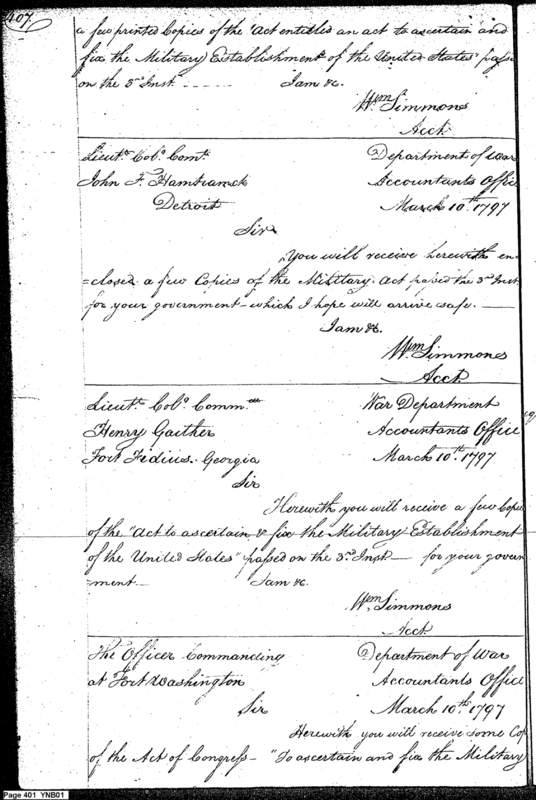 407.
a few printed Copies of the "Act entitled an act to ascertain and
fix the Military Establishment of the United States" pass
on the 3d Inst. I am &c.
Wm. Simmons
Acct.
Lieut. Colo. Comt. Department of War
John F. Hamtramck Accountants Office
Detroit March 10th. 1797
Sir
You will receive herewith en-
=closed a few Copies of the Military Act passed the 3d Inst.
for your government - which I hope will arrive safe.
I am &c.
Wm. Simmons
Acct.
Lieut. Colo. Comm. War Department
Henry Gaither Accountants Office
Fort Fidius. Georgia March 10th. 1797
Sir
Herewith you will receive a few Copi
of the "Act to ascertain & fix the Military Establishment
of the United States" passed on the 3d. Inst - for your govern
=ment. I am &c.
Wm. Simmons
Acct.
The Officer Commanding Department of War
at Fort Washington Accountants Office
Sir March 10th. 1797
Herewith you will receive some Cop
of the Act of Congress - "To ascertain and fix the Military
Page 401 YNB01